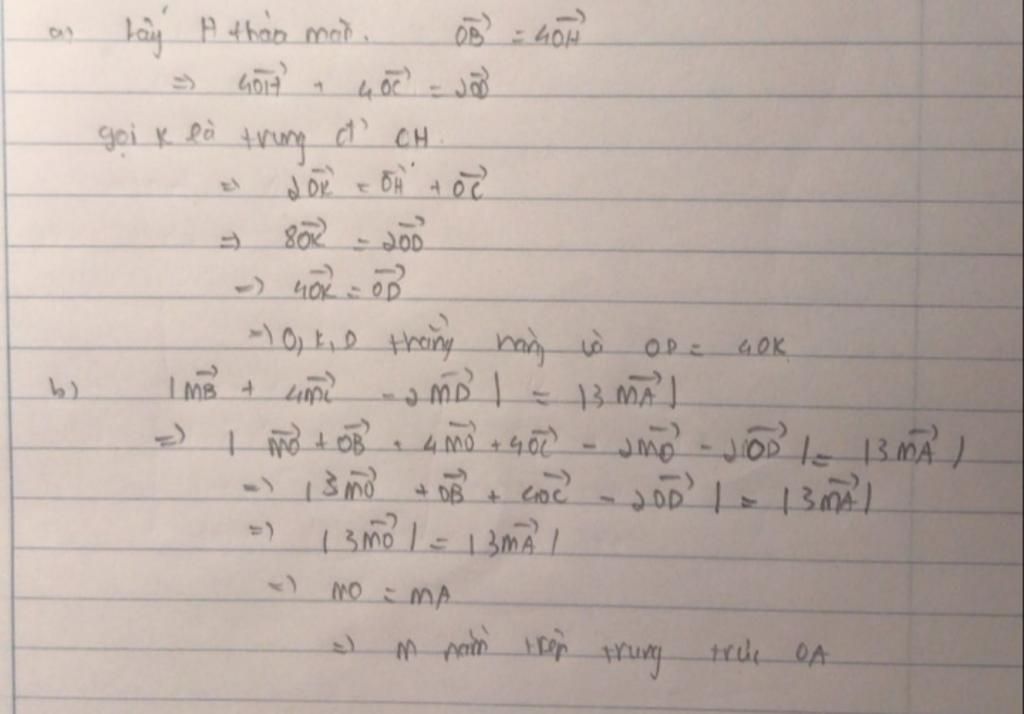 a) Lấy H thỏa mãn. $\overrightarrow{OB} = 4\overrightarrow{OH}$
⇒ $4\overrightarrow{OH} + 4\overrightarrow{OC} = 2\overrightarrow{OD}$
gọi K là trung đ' CH.
⇒ $2\overrightarrow{OK} = \overrightarrow{OH} + \overrightarrow{OC}$
⇒ $8\overrightarrow{OK} = 2\overrightarrow{OD}$
⇒ $4\overrightarrow{OK} = \overrightarrow{OD}$
⇒ O, K, D thẳng hàng và OD = 4OK
b) $|\overrightarrow{MB} + 4\overrightarrow{MC} - 2\overrightarrow{MD}| = |3\overrightarrow{MA}|$
⇒ $|\overrightarrow{MO} + \overrightarrow{OB} + 4\overrightarrow{MO} + 4\overrightarrow{OC} - 2\overrightarrow{MO} - 2\overrightarrow{OD}| = |3\overrightarrow{MA}|$
⇒ $|3\overrightarrow{MO} + \overrightarrow{OB} + 4\overrightarrow{OC} - 2\overrightarrow{OD}| = |3\overrightarrow{MA}|$
⇒ $|3\overrightarrow{MO}| = |3\overrightarrow{MA}|$
⇒ MO = MA
⇒ M nằm trên trung trực OA